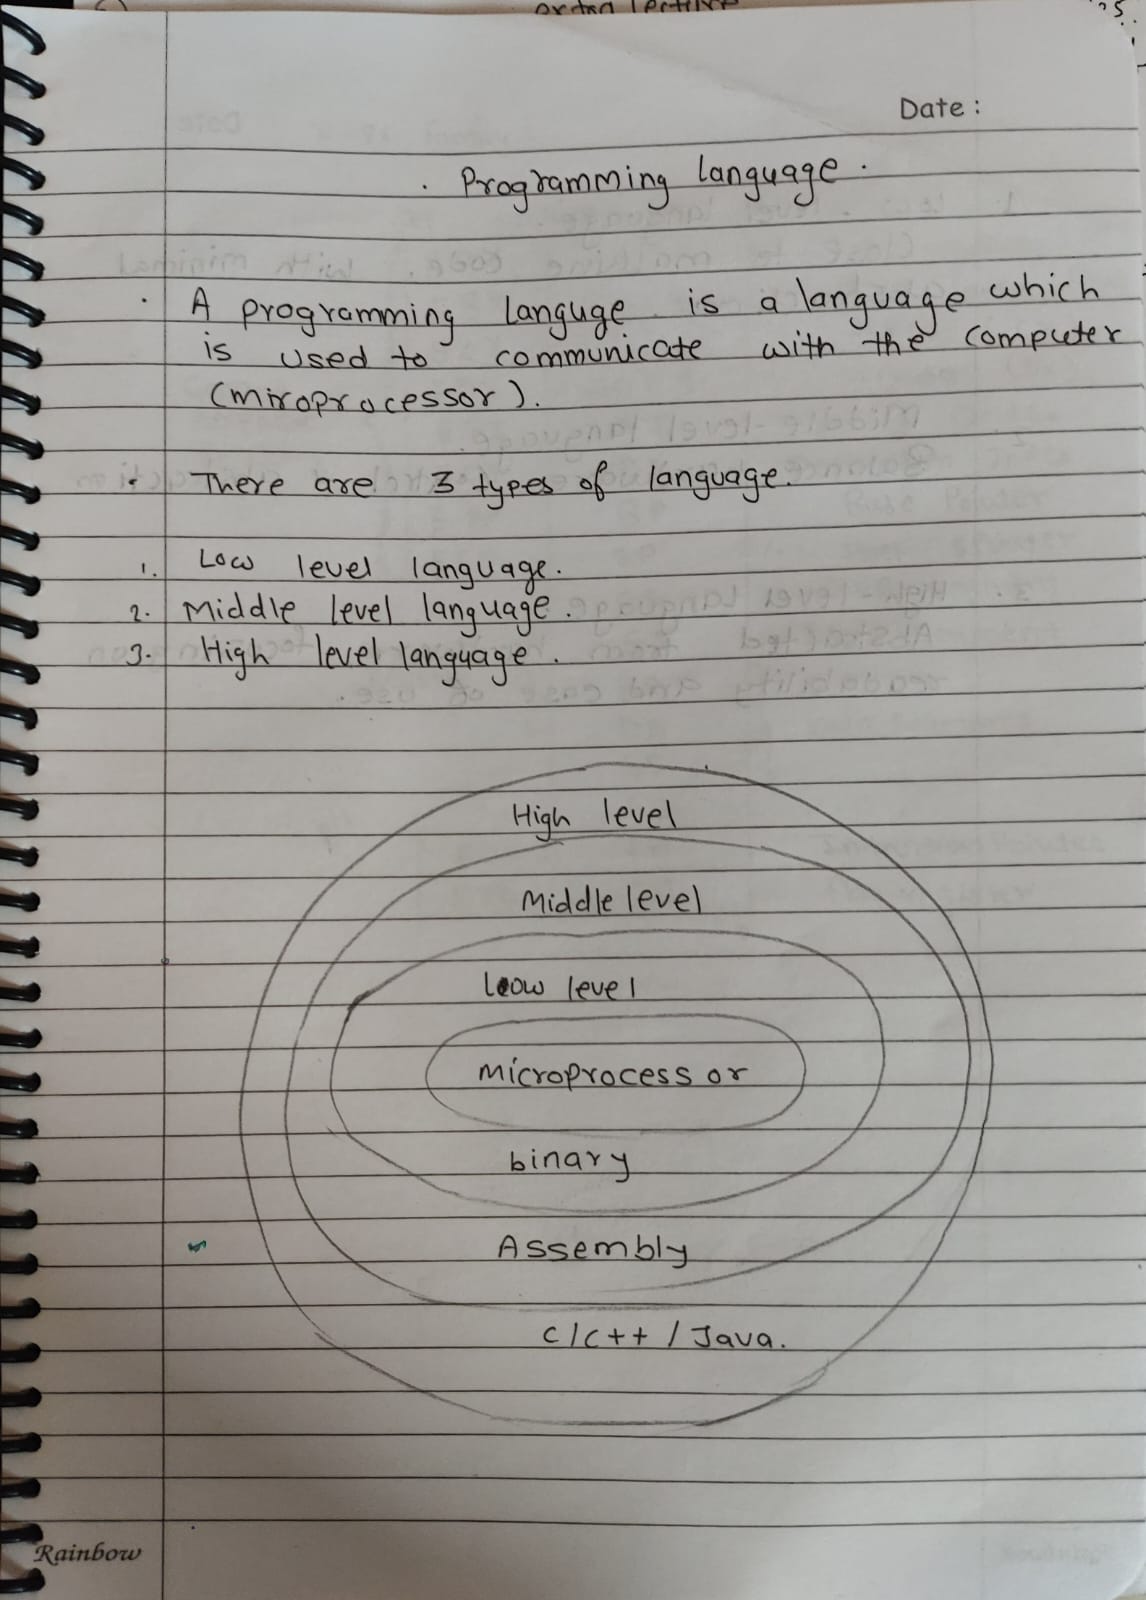 Date :
. Programming language .
. A programming languge is a language which
is used to communicate with the computer
(miroprocessor).
. There are 3 types of language.
1. Low level language.
2. Middle level language.
3. High level language.
High level
Middle level
Low level
microprocessor
binary
Assembly
C/C++ / Java.
Rainbow